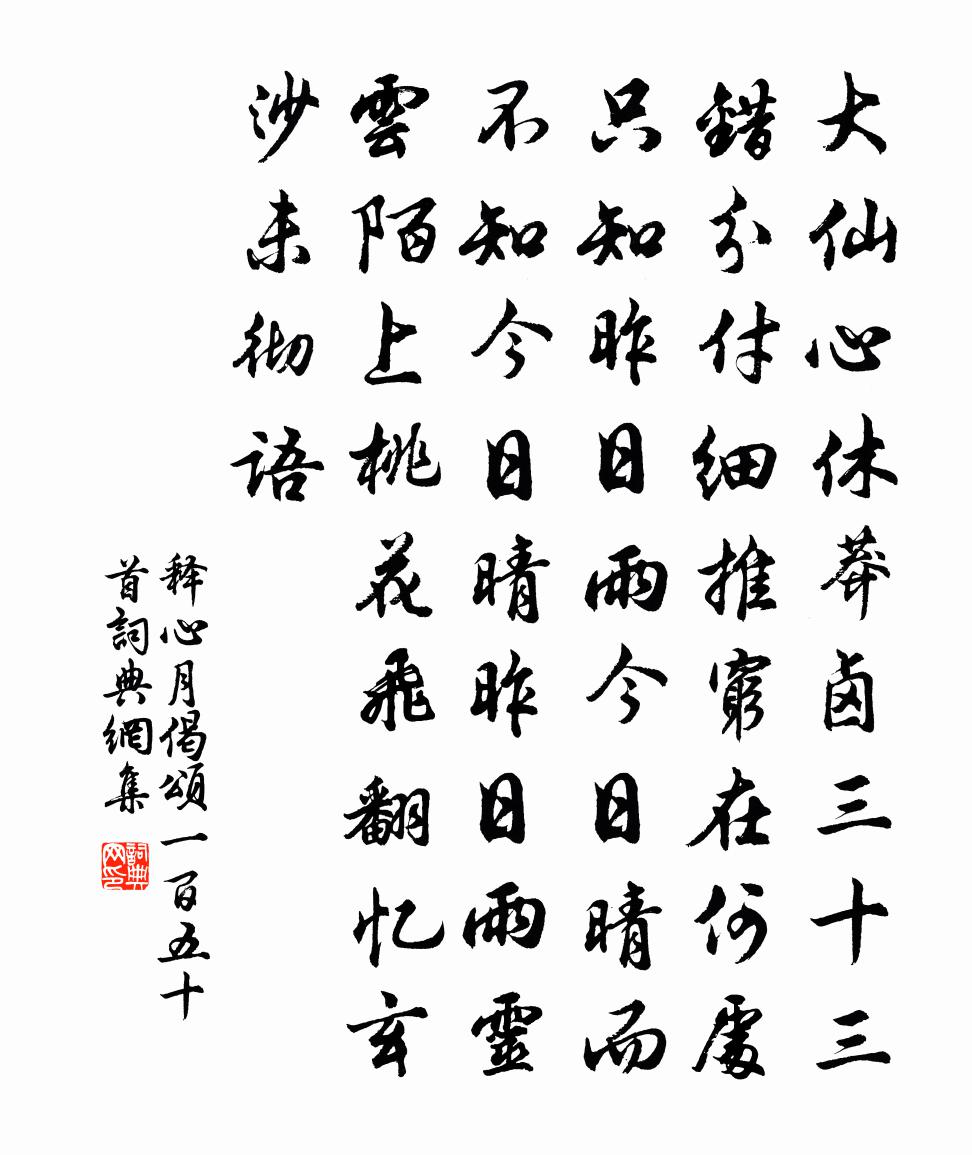 大仙心休莽卤三十三
錯分付细推窮在何處
只知昨日雨今日晴而
不知今日晴昨日雨靈
雲陌上桃花飛翻忆玄
沙未彻語
释心月偈頌一百五十
首詞典網集
詞典网印